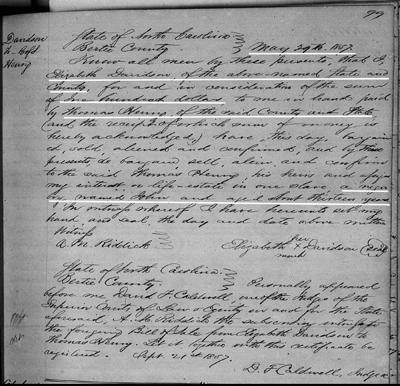 99
Davidson
to
Henry
State of North Carolina
Bertie County May 29th 1857
Know all men by these presents, that I
Elizabeth Davidson of the above named State and
County, for and in consideration of the sum
of five hundred dollars to me in hand paid
by Thomas Henry of the said County and State
and the receipt of which sum of money is
hereby acknowledged, have this day bargain
ed, sold, aliened and confirmed, and by these
presents, do bargain sell, alien, and confirm
to the said Thomas Henry, his heirs and assigns
my interest or life-estate in one slave, a negro
boy named John and aged about thirteen years
In witness whereof I have hereunto set my
hand and seal, the day and date above written
Witness
A. M. Riddick Elizabeth her x mark Davidson (Seal)
State of North Carolina
Bertie County Personally appeared
before me David F Caldwell, one of the Judges of the
Superior Courts of Law & Equity in and for the State
aforesaid, A. M. Riddick the subscribing witness to
the foregoing Bill of Sale from Elizabeth Davidson to
Thomas Henry. Let it together with this certificate be
registered. Sept. 21st 1857.
D. F Caldwell, Judge